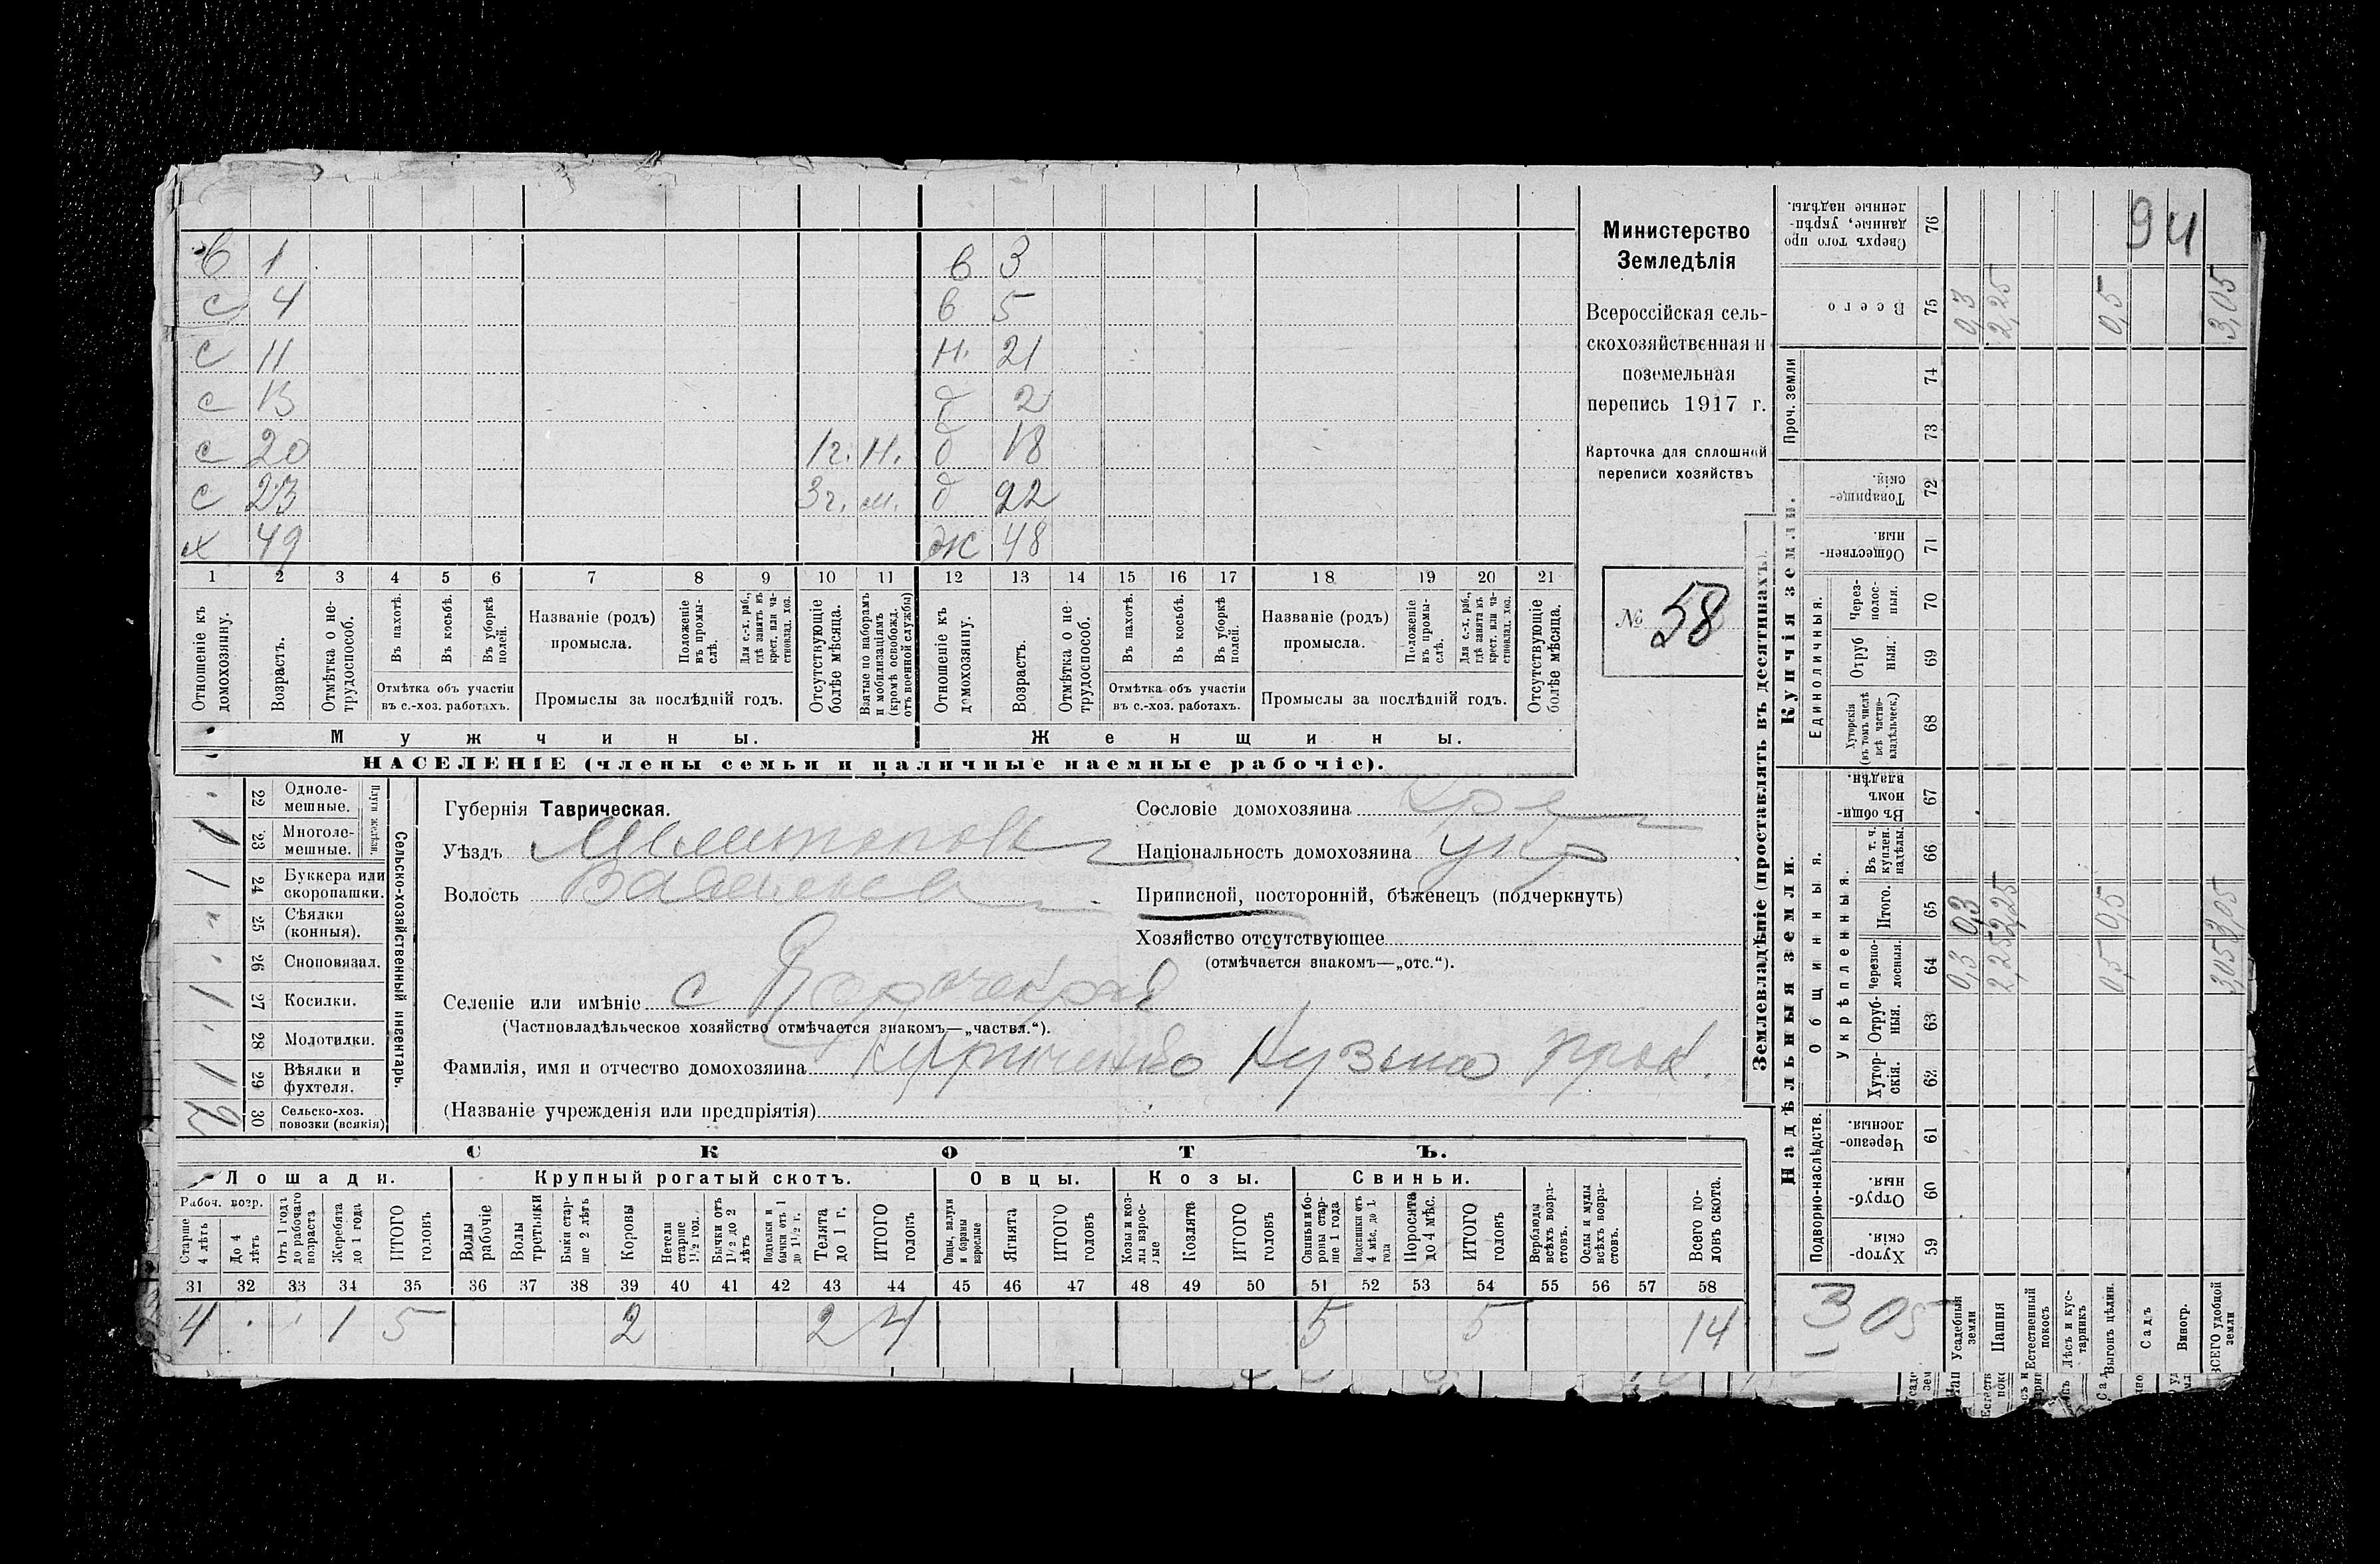 в 1 в 3
с 4 в 5
с 11 н. 21
с 13 д 2
с 20 1г. н. д 18
с 23 3г. н. д 22
х 49 ж 48
1 2 3 4 5 6 7 8 9 10 11 12 13 14 15 16 17 18 19 20 21
Отношеніе къ домохозяину.
Возрастъ.
Отмѣтка о нетрудоспособ.
Въ пахотѣ.
Въ косьбѣ.
Въ уборкѣ полей.
Отмѣтка объ участіи въ с.-хоз. работахъ.
Названіе (родъ) промысла.
Положеніе въ промыслѣ.
Для с.-х. раб., гдѣ занятъ въ крест. или частновлад. хоз.
Промыслы за послѣдній годъ.
Отсутствующіе болѣе мѣсяца.
Взятые по наборамъ и мобилизаціямъ (кромѣ освобожд. отъ военной службы)
Отношеніе къ домохозяину.
Возрастъ.
Отмѣтка о нетрудоспособ.
Въ пахотѣ.
Въ косьбѣ.
Въ уборкѣ полей.
Отмѣтка объ участіи въ с.-хоз. работахъ.
Названіе (родъ) промысла.
Положеніе въ промыслѣ.
Для с.-х. раб., гдѣ занята въ крест. или частновлад. хоз.
Промыслы за послѣдній годъ.
Отсутствующіе болѣе мѣсяца.
Мужчины. Женщины.
НАСЕЛЕНІЕ (члены семьи и наличные наемные рабочіе).
Министерство
Земледѣлія
Всероссійская сель-
скохозяйственная и
поземельная
перепись 1917 г.
Карточка для сплошной
переписи хозяйствъ
№ 58
Сельско-хозяйственный инвентарь.
Плуги желѣзн.
22 Одноле-
мешные.
1 23 Многоле-
мешные.
1 24 Буккера или
скоропашки.
" 25 Сѣялки
(конныя).
26 Сноповязал.
1 27 Косилки.
28 Молотилки.
1 29 Вѣялки и
фухтеля.
2 30 Сельско-хоз.
повозки (всякія)
Губернія Таврическая.
Уѣздъ Мелитопольск
Волость
Селеніе или имѣніе с
(Частновладѣльческое хозяйство отмѣчается знакомъ—„частвл.“).
Фамилія, имя и отчество домохозяина Кириченко Кузьма Прок.
(Названіе учрежденія или предпріятія)
Сословіе домохозяина кре
Національность домохозяина укр
Приписной, посторонній, бѣженецъ (подчеркнуть)
Хозяйство отсутствующее
(отмѣчается знакомъ—„отс.“).
СКОТЪ.
Лошади. Крупный рогатый скотъ. Овцы. Козы. Свиньи.
Рабоч. возр.
Старше 4 лѣтъ
До 4 лѣтъ
Отъ 1 года до рабочаго возраста
Жеребята до 1 года
ИТОГО головъ
Волы рабочіе
Волы третьяки
Быки старше 2 лѣтъ
Коровы
Нетели старше 1½ год.
Бычки отъ 1½ до 2 лѣтъ
Подтелки и бычки отъ 1 до 1½ г.
Телята до 1 г.
ИТОГО головъ
Овцы, валухи и бараны взрослые
Ягнята
ИТОГО головъ
Козы и козлы взрослые
Козлята
ИТОГО головъ
Свиньи и бороны старше 1 года
Подсвинки отъ 4 мѣс. до 1 года
Поросята до 4 мѣс.
ИТОГО головъ
Верблюды всѣхъ возрастовъ.
Ослы и мулы всѣхъ возрастовъ.
Всего головъ скота.
31 32 33 34 35 36 37 38 39 40 41 42 43 44 45 46 47 48 49 50 51 52 53 54 55 56 57 58
4 1 5 2 2 4 5 5 14
Землевладѣніе (проставлять въ десятинахъ).
Надѣльныя земли. Купчія земли. Проч. земли
Подворно-наслѣдств.
Общинныя.
Укрѣпленныя.
Единоличныя.
Хуторскія. 59
Отрубныя. 60
Черезполосныя. 61
Хуторскія. 62
Отрубныя. 63
Черезполосныя. 64
Итого. 65
Въ т. ч. куплен. надѣлы. 66
Въ общинномъ владѣн. 67
Хуторскія (въ томъ числѣ всѣ частновладѣльческ.) 68
Отрубныя. 69
Черезполосныя. 70
Общественныя. 71
Товарищескія. 72
73
74
Всего 75
Сверхъ того проданные, укрѣпленные надѣлы. 76
3 05
Усадебныя земли 0,3 0,3 0,3
Пашня 2,25 2,25 2,25
Естественный покосъ
Лѣсъ и кустарникъ
Выгонъ цѣлин. 0,5 0,5 0,5
Садъ
Виногр.
ВСЕГО удобной земли 3,05 3,05 3,05
94